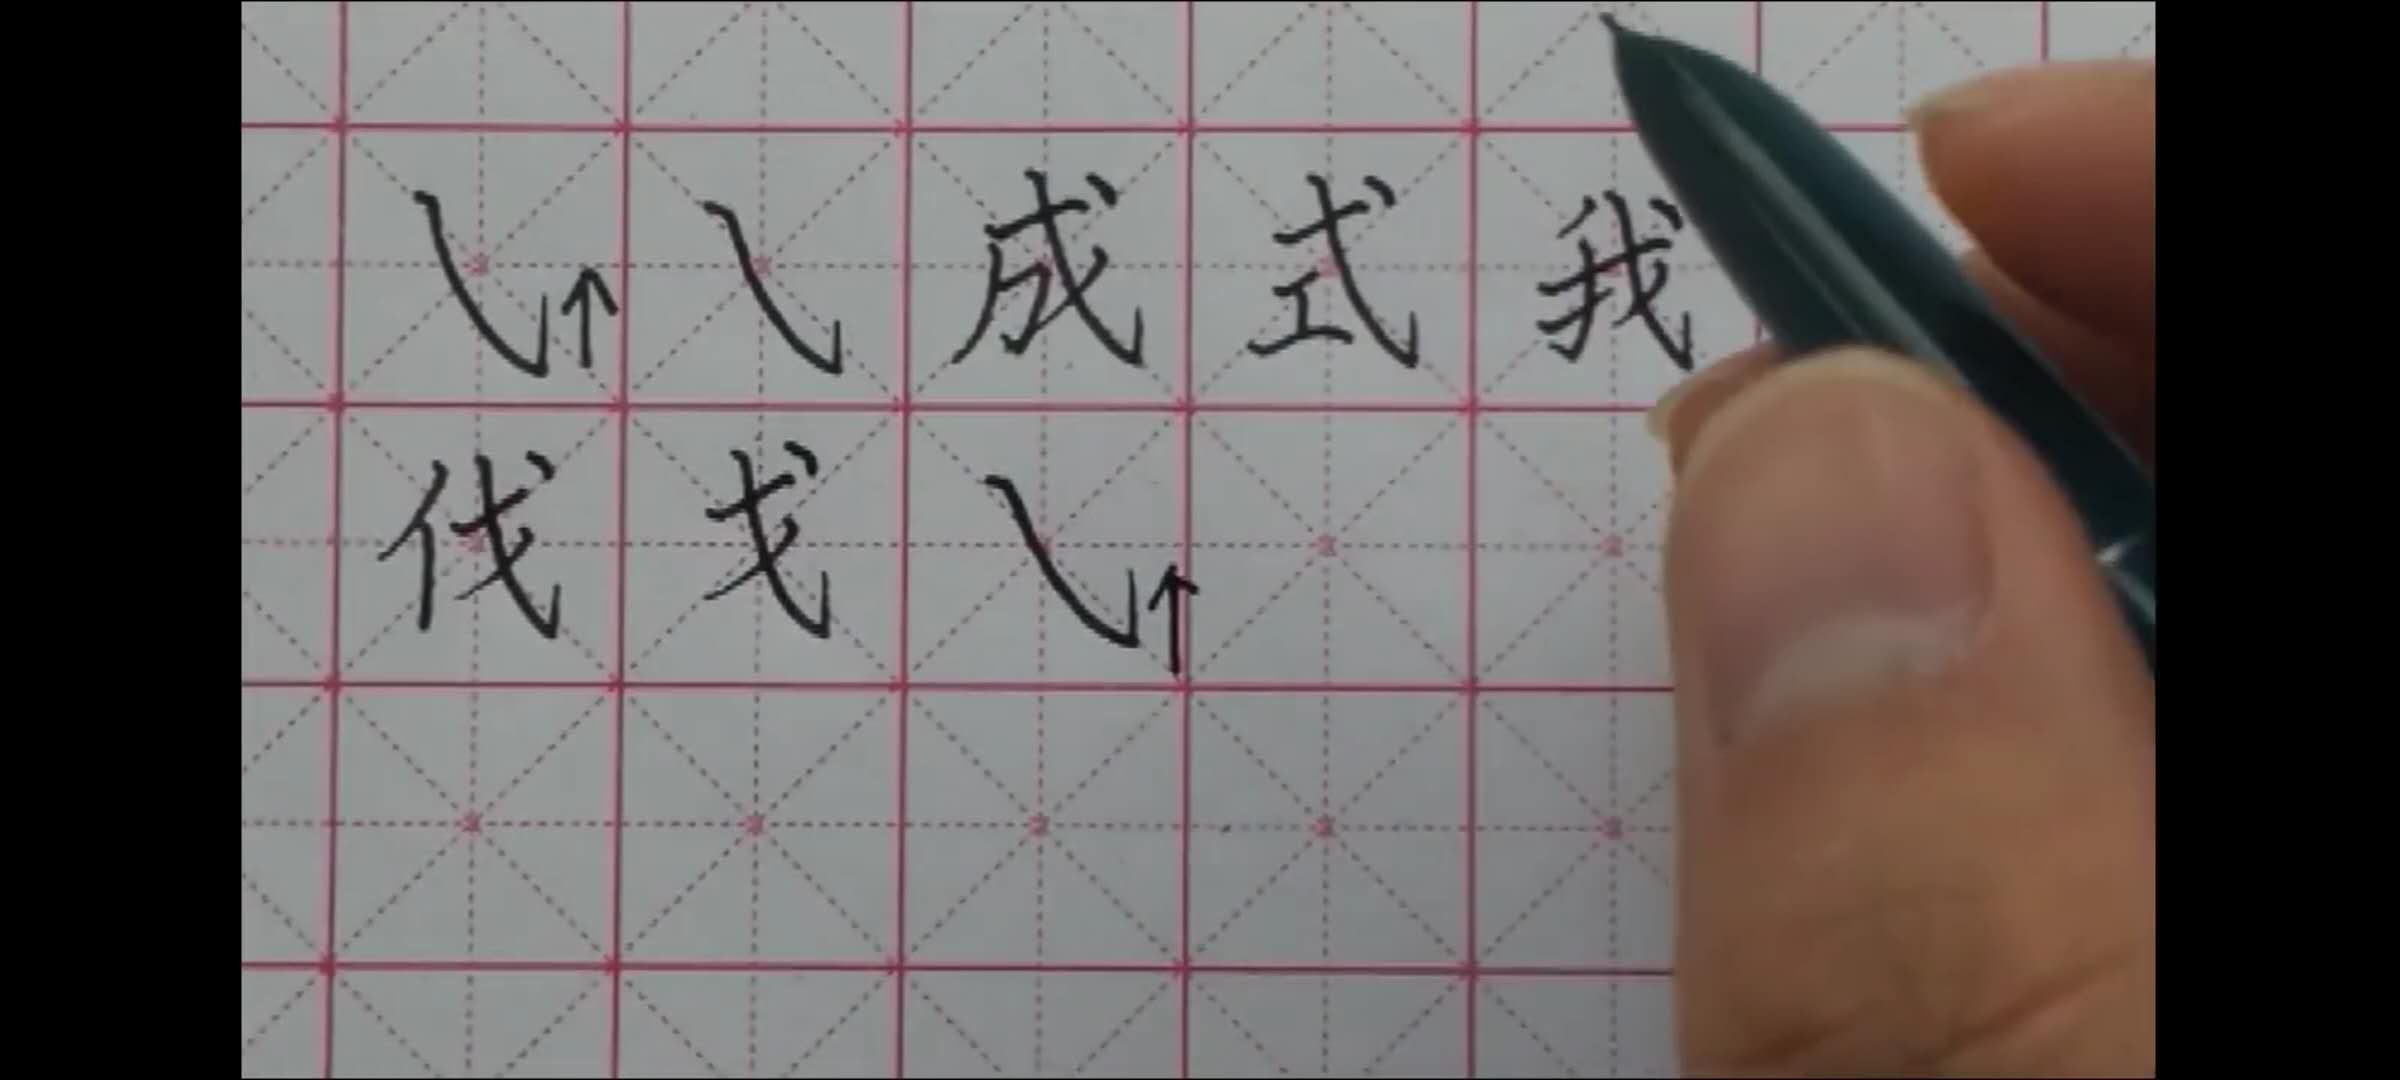 ㇂↑㇂成式我
伐戈㇂↑